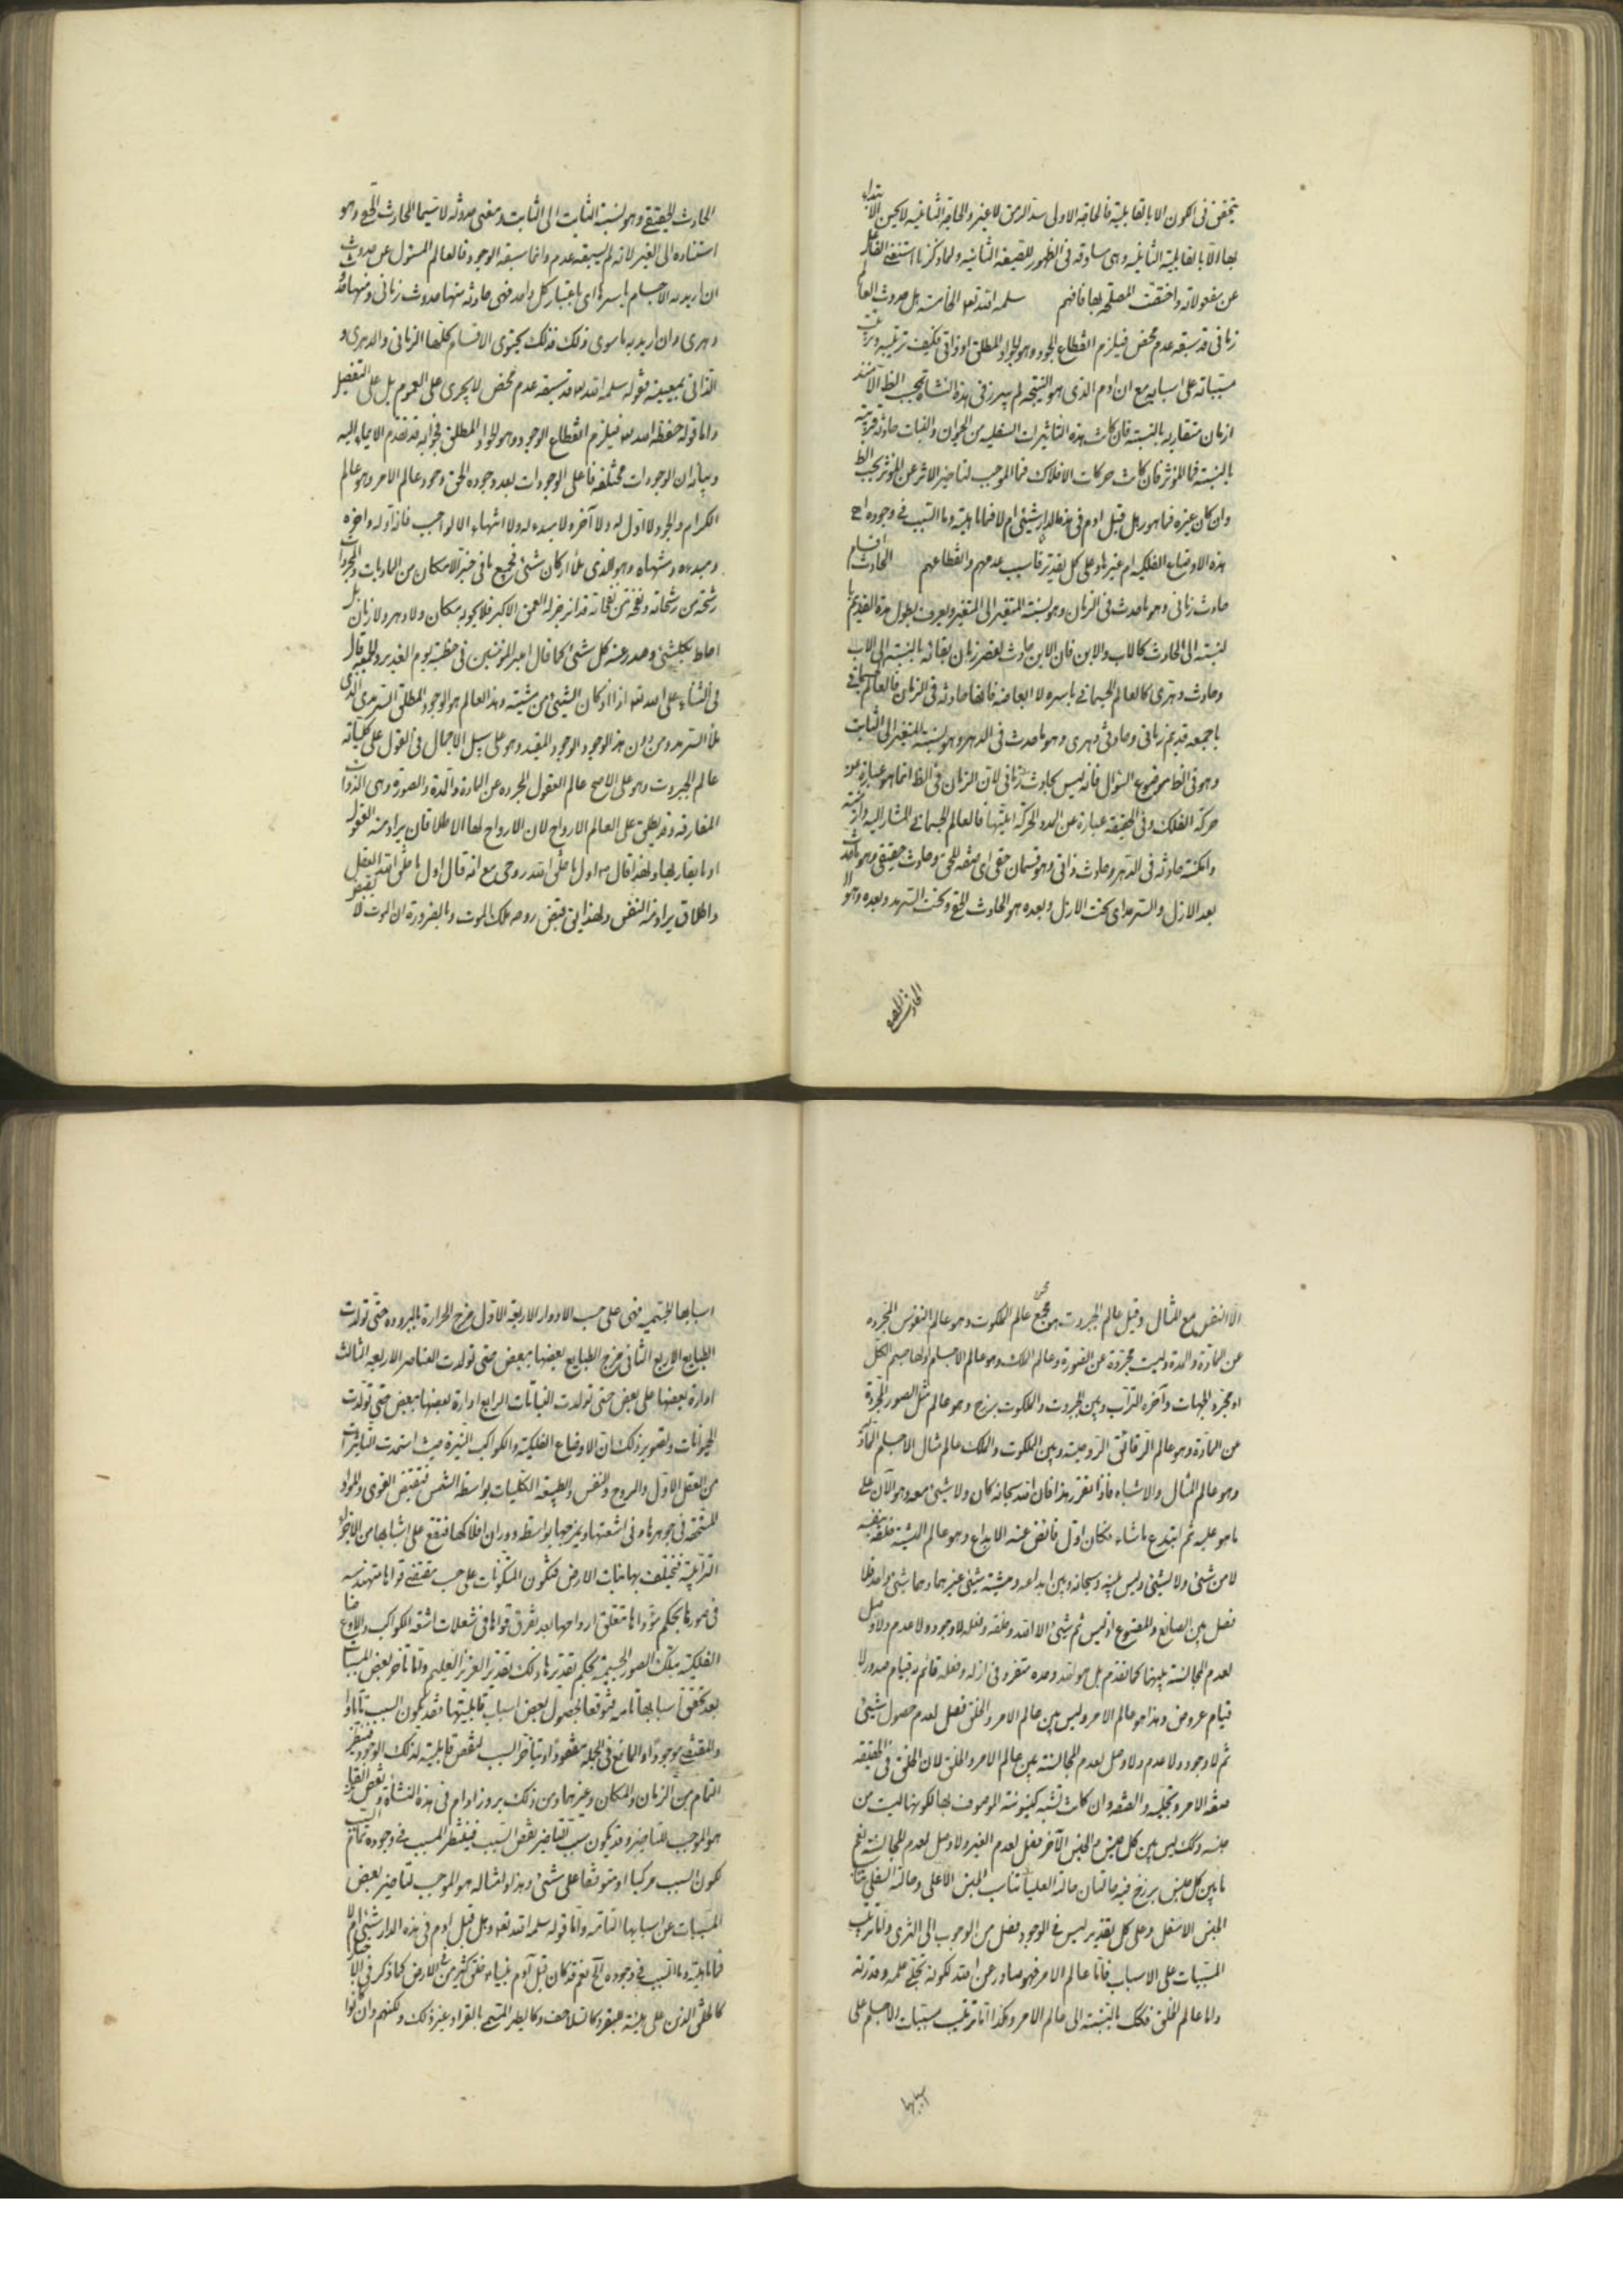 يتحقق فى الكون الا بالقابلية فالحاجة الاولى سد الرمق لا غير والحاجة الثانية لا يكون الابتداء
بها الا بالقابلية الثانية وهى مساوقة فى الظهور للصيغة الثانية ولما ذكرنا استغنى الفاعل
عن مفعولاته واختفت المصلحة بها فافهم سلمه الله تعالى الخامسة هل حدوث العالم
زمانى قد سبقه عدم محض فيلزم انقطاع الجود وهو الجواد المطلق او ذاتى فكيف ترتبت
مسبباته على اسبابه مع ان ادم الذى هو النتيجة لم يبرز فى هذه النشأة بحسب الظ الا منذ
ازمان متقاربة بالنسبة فان كانت هذه التاثيرات السفلية من الحيوان والنبات حادثة قريبة
بالنسبة فما المؤثر فان كانت حركات الافلاك فما الموجب لتاخير الاثر عن المؤثر بحسب الظ
وان كان غيره فما هو وهل قبل ادم فى هذه الدار شيئ ام لا فما ماهيته وما السبب فى وجوده اح
هذه الاوضاع الفلكية ام غيرها وعلى كل تقدير فما سبب عدمهم وانقطاعهم الحادث اقسام
حادث زمانى وهو ما حدث فى الزمان وهو نسبة المتغير الى المتغير ويعرف بطول مدة القديم
لنسبته الى الحادث كالاب والابن فان الابن حادث لقصر زمان بقائه بالنسبة الى الاب
وحادث دهرى كالعالم الجسمانى باسره لا ابعاضه فانها حادثة فى الزمان فالعالم الجسمانى
باجمعه قديم زمانى وحادث دهرى وهو ما حدث فى الدهر وهو نسبة المتغير الى الثابت
وهو فى الظاهر موضوع السؤال فانه ليس بحادث زمانى لان الزمان فى الظ انما هو عبارة عن
حركة الفلك وفى الحقيقة عبارة عن المدد الحركة اينيتها فالعالم الجسمانى المشار اليه وازمنته
وامكنته حادثة فى الدهر وحادث ذاتى وهو قسمان حقى اى صفة للحق وحادث حقيقى وهو ما حدث
بعد الازل والسرمد اى تحت الازل وبعده هو الحادث الحق وتحت السرمد وبعده هو
الحادث الحقيقى
الحادث الحقيقى وهو نسبة الثابت الى الثابت ومعنى حدوثه لا سيما الحادث الحق وهو
استناده الى الغير لانه لم يسبقه عدم وانما سبقه الوجود فالعالم المسئول عن حدوثه
ان اريد به الاجسام باسرها اى باعتبار كل واحد فهى حادثة منها حدوث زمانى ومنها
دهرى وان اريد به ما سوى ذلك فذلك يحتوى الاقسام كلها الزمانى والدهرى و
الذاتى بمعييه فقوله سلمه الله تعالى قد سبقه عدم محض لا يجرى على العموم بل على التفصيل
واما قوله حفظه الله تعالى فيلزم انقطاع الوجود وهو الجواد المطلق فجوابه قد تقدم الايماء اليه
وبيانه ان الوجودات مختلفة فاعلى الوجودات بعد وجوده الحق وجود عالم الامر وهو عالم
الكرم والجود لا اول له ولا آخر ولا مبدء له ولا انتهاء الا لواجب فانه اوله واخره
ومبدءه ومنتهاه وهو الذى ملأ اركان كل شئ فجميع ما فى حيز الامكان من الماديات والمجردات
رشحة من رشحاته ونفخة من نفخاته قد انزجر له العمق الاكبر فلا يحويه مكان ولا دهر ولا زمان بل
احاط بكل شئ وصدر عنه كل شئ كما قال امير المؤمنين فى خطبته يوم الغدير والجمعة قال
فى الثناء على الله تعالى اذ كان الشئ من مشيته وهذا العالم هو الوجود المطلق السرمدى الذى
ملأ السرمد ومن دون هذا الوجود الوجود المقيد وهو على سبيل الاجمال فى القول على كلياته
عالم الجبروت وهو على الاصح عالم العقول المجردة عن المادة والمدة والصورة وهى الذوات
المفارقة وقد يطلق على العالم الارواح لان الارواح لها اطلاقان يراد منه العقول
او ما يقاربها ولهذا قال ص اول ما خلق الله روحى مع انه قال اول ما خلق الله العقل
واطلاق يراد منه النفس ولهذا يقال قبض روحه ملك الموت وبالضرورة ان الموت لا يقبض
الا النفس مع المثال وقيل عالم الجبروت هو مجمع عالم الملكوت وهو عالم النفوس المجرده
عن المادة والمدة وليست مجردة عن الصورة وعالم الملك وهو عالم الاجسام اولها جسم الكل
او محدد الجهات وآخره التراب وبين الجبروت والملكوت برزخ وهو عالم مثل الصور المجردة
عن المادة وهو عالم الرقائق الروحية وبين الملكوت والملك عالم مثال الاجسام
وهو عالم المثال والاشباه فاذا تقرر هذا فان الله سبحانه كان ولا شيئ معه وهو الآن على
ما هو عليه ثم ابتدع ما شاء فكان اول فائض عنه الابداع وهو عالم المشية خلقه بنفسه
لا من شئ ولا لشئ وليس بينه وسبحانه وبين ابداعه ومشيته شئ غيرهما وهما شئ واحد فلا
فصل بين الصانع والمصنوع اذ ليس ثم شئ الا الله وخلقه وفعله لا وجود ولا عدم ولا وصل
لعدم المجانسة بينهما كما تقدم بل هو الله وحده متفرد فى ازله وفعله قائم به قيام صدور لا
قيام عروض وهذا هو عالم الامر وليس بين عالم الامر والخلق فصل لعدم حصول شيئ
ثم لا وجود ولا عدم ولا وصل لعدم المجانسة بين عالم الامر والخلق لان الخلق فى الحقيقة
صفة الامر وتجليه والصفة وان كانت تشبه كينونة الموصوف بها لكونها ليست من
جنسه وكذلك ليس بين كل جنس والجنس الآخر فصل لعدم الغير ولا وصل لعدم المجانسة نعم
ما بين كل جنس برزخ فيه حالتان حالته العليا تناسب الجنس الاعلى وحالته السفلى تناسب
الجنس الاسفل وعلى كل تقدير ليس فى الوجود فصل من الوجوب الى الثرى واما ترتيب
المسببات على الاسباب فاما عالم الامر فهو صادر عن الله لكونه تجلى علمه وقدرته
واما عالم الخلق فكذلك بالنسبة الى عالم الامر وكذا اما ترتيب مسببات الاجسام على
اسبابها
اسبابها الجسمية فهى على حسب الادوار الاربعة الاول مزج الحرارة بالبرودة حتى تولدت
الطبايع الاربع الثانى مزج الطبايع بعضها ببعض حتى تولدت العناصر الاربعة الثالث
ادارة بعضها على بعض حتى تولدت النباتات الرابع ادارة بعضها ببعض حتى تولدت
الحيوانات وتصوير ذلك ان الاوضاع الفلكية والكواكب النيرة حيث استمدت التاثيرات
من العقل الاول والروح والنفس والطبيعة الكليات بواسطة الشمس فتقبض القوى والمواد
المستجنة فى جوهرها وفى اشعتها ويمزجها بواسطة دوران افلاكها فتقع على اشباهها من الاجزاء
الترابية فيختلف بها نبات الارض فتكون المتكونات على حسب مقتضى قواها متهندسة
فى صورها بحكم موادها متعلق ارواحها بعد تفرق قواها فى شعلات اشعة الكواكب والاوضاع
الفلكية بتلك الصور الجسمية بحكم تقديرها ذلك تقدير العزيز العليم واما تاخر بعض المسببات
بعد تحقق اسبابها تامة لتوقفها لحصول بعض اسباب قابليتها فقد يكون السبب تاما
والمقتضى موجودا والمانع فى الجملة مفقودا ويتاخر السبب لنقص قابليته لذلك الوجود فينتظر
التمام من الزمان والمكان وغيرهما ومن ذلك بروز ادم فى هذه النشأة ونقص القابل
هو الموجب للتاخير وقد يكون سبب التاخير نقص السبب فينتظر المسبب فى وجوده تمام السبب
لكون السبب مركبا او متوقفا على شئ وهذا وامثاله هو الموجب لتاخير بعض
المسببات عن اسبابها التامة واما قوله سلمه الله تعالى وهل قبل ادم فى هذه الدار شئ ام لا
فما ماهيته وما السبب فى وجوده الخ نعم قد كان قبل آدم خلق كثير من الارض كما ذكر فى الاخبار
كالخلق الذين على هيئة البقر وكالسلاحف وكالطير المتسمى بالقرا وغير ذلك ولكنهم وان كانوا